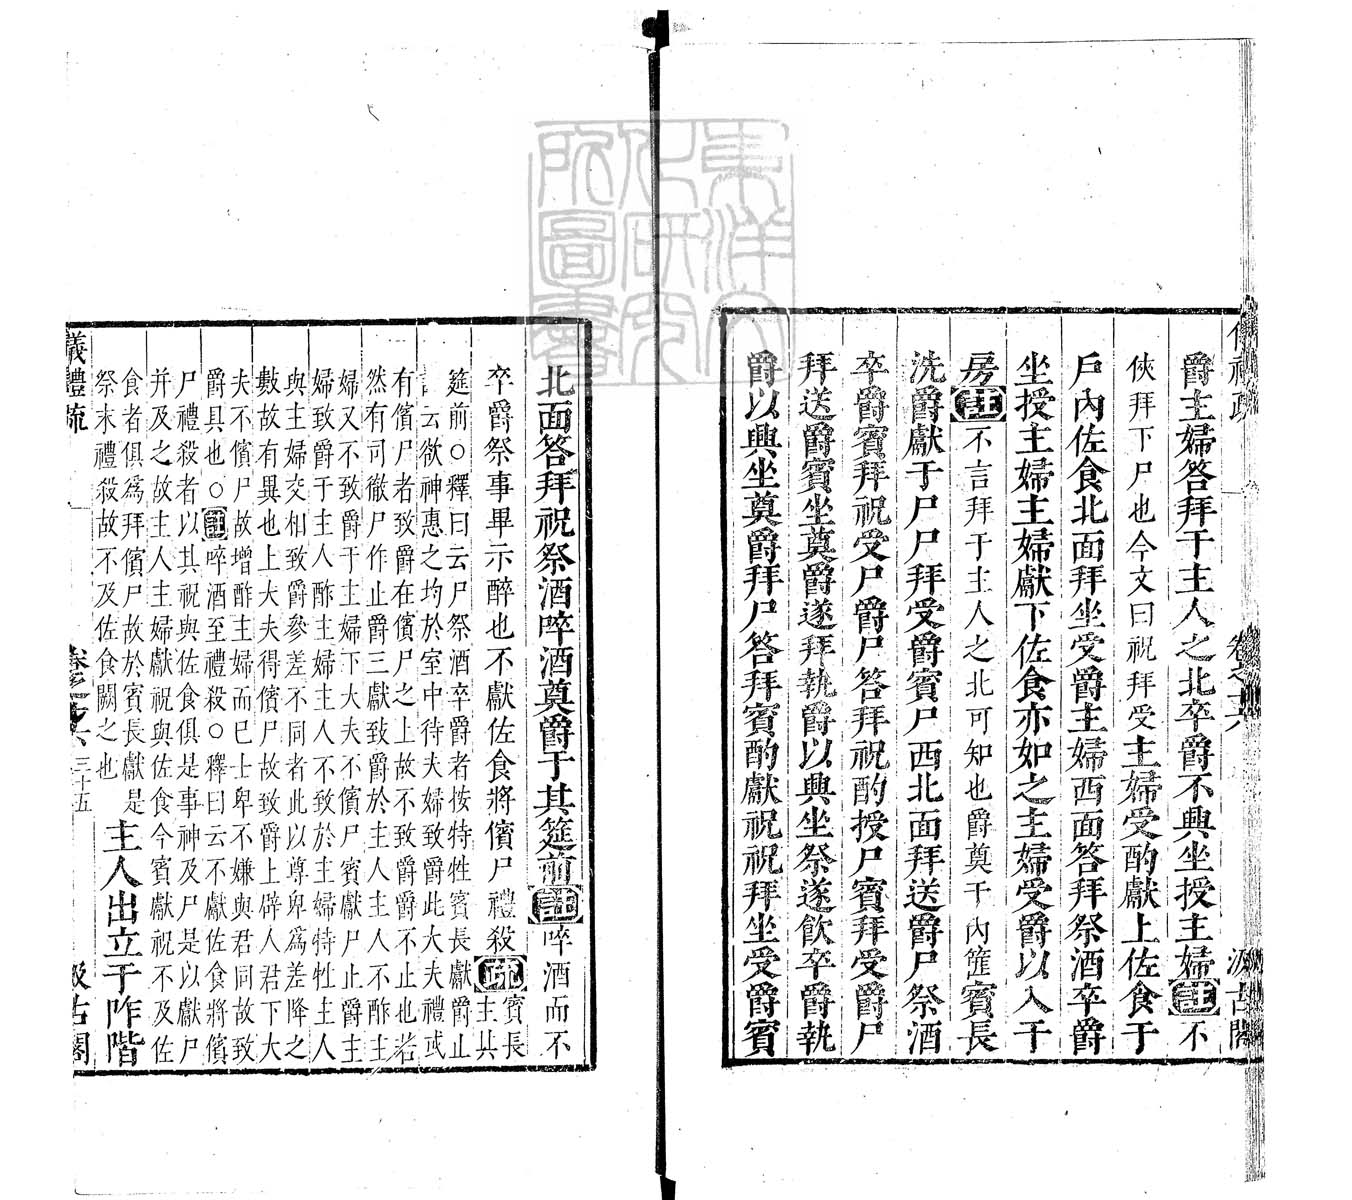 爵主婦答拜于主人之北卒爵不興坐授主婦註不
俠拜下尸也今文曰祝拜受主婦受酌獻上佐食于
戶內佐食北面拜坐受爵主婦西面答拜祭酒卒爵
坐授主婦主婦獻下佐食亦如之主婦受爵以入于
房註不言拜于主人之北可知也爵奠于內篚賓長
洗爵獻于尸尸拜受爵賓尸西北面拜送爵尸祭酒
卒爵賓拜祝受尸爵尸答拜祝酌授尸賓拜受爵尸
拜送爵賓坐奠爵遂拜執爵以興坐祭遂飲卒爵執
爵以興坐奠爵拜尸答拜賓酌獻祝祝拜坐受爵賓
北面答拜祝祭酒啐酒奠爵于其筵前註啐酒而不
卒爵祭事畢示醉也不獻佐食將儐尸禮殺疏賓長
主其
筵前○釋曰云尸祭酒卒爵者按特牲賓長獻爵止
註云欲神惠之均於室中待夫婦致爵此大夫禮或
有儐尸者致爵在儐尸之上故不致爵爵不止也若
然有司徹尸作止爵三獻致爵於主人主人不酢主
婦又不致爵于主婦下大夫不儐尸賓獻尸止爵主
婦致爵于主人酢主婦主人不致於主婦特牲主人
與主婦交相致爵參差不同者此以尊卑爲差降之
數故有異也上大夫得儐尸故致爵上辟人君下大
夫不儐尸故增酢主婦而已士卑不嫌與君同故致
爵具也○註啐酒至禮殺○釋曰云不獻佐食將儐
尸禮殺者以其祝與佐食俱是事神及尸是以獻尸
并及之故主人主婦獻祝與佐食今賓獻祝不及佐
食者俱爲拜儐尸故於賓長獻是
祭末禮殺故不及佐食闕之也
主人出立于阼階
儀禮疏
卷之十六
三十五
汲古閣